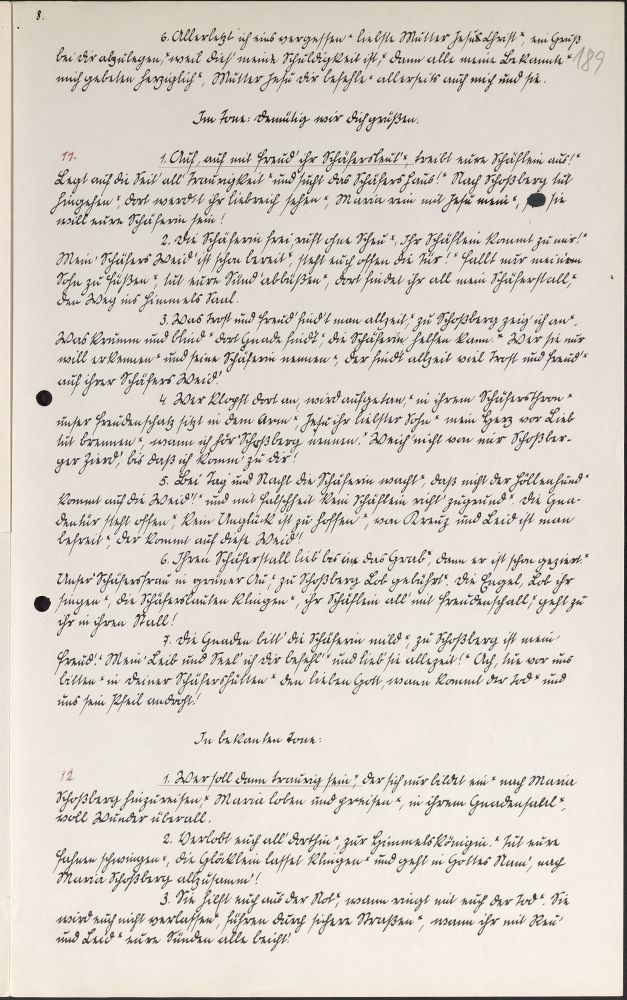 8.
189
6. Allerletzt ich eins vergessen × liebste Mutter Jesus Christ ×, ein Gruß
bei dir abzulegen, × weil dies' meine Schuldigkeit ist, × dann alle meine Bekannte ×
mich gebeten herziglich ×, Mutter Jesu dir befehle × allerseits auch mich und sie.
Im Tone: Demütig wir dich grüßen.
11. 1. Auf, auf mit Freud' ihr Schäfersleut' ×, treibt eure Schäflein aus! ×
Legt auf die Seit' all' Traurigkeit × und sucht das Schäfers Haus! × Nach Schoßberg tut
hingehen ×, dort werd't ihr liebreich sehen ×, Maria rein mit Jesu mein ×, sie
will eure Schäferin sein!
2. Die Schäferin frei, ruft ohne Scheu ×, Ihr Schäflein kommt zu mir! ×
Mein' Schäfers Weid' ist schon bereit ×, steht euch offen die Tür! × Fallt nur meinem
Sohn zu Füßen ×, tut eure Sünd' abbüßen ×, dort findet ihr all mein Schäferstall, ×
den Weg ins Himmels Saal.
3. Was Trost und Freud' find't man allzeit, × zu Schoßberg zeig' ich an ×.
Was krumm und blind × dort Gnade find't, × die Schäferin helfen kann. × Wer sie nur
will erkennen × und seine Schäferin nennen ×, der find't allzeit viel Trost und Freud' ×
auf ihrer Schäfers Weid'.
4. Wer klopft dort an, wird aufgetan, × in ihrem Schäfersthron ×
unser Freudenschatz sitzt in dem Arm × Jesu ihr liebster Sohn × mein Herz vor Lieb
tut brennen ×, wann ich hör' Schoßberg nennen. × Weich' nicht von mir Schoßber-
ger Zierd', bis daß ich komm' zu dir!
5. Bei Tag und Nacht die Schäferin wacht ×, daß nicht der Höllenhund ×
kommt auf die Weid'! × und mit Falschheit kein Schäflein richt' zugrund ×. Die Gna-
dentür steht offen ×, kein Unglück ist zu hoffen ×, von Kreuz und Leid ist man
befreit ×, der kommt auf diese Weid'!
6. Ihren Schäferstall lieb' bis in das Grab ×, dann er ist schon geziert. ×
Unser' Schäfersfrau in grüner Au ×, zu Schoßberg Lob gebührt ×. Die Engel, Lob ihr
singen ×, die Schäferslauten klingen ×, ihr Schäflein all' mit Freudenschall, × geht zu
ihr in ihren Stall!
7. Die Gnaden bitt' die Schäferin mild ×, zu Schoßberg ist mein'
Freud! × Mein' Leib und Seel' ich dir befehl' × und lieb' sie allezeit! × Ach, tue vor uns
bitten × in deiner Schäfershütten × den lieben Gott, wann kommt der Tod × und
uns sein Pfeil androht!
In bekanten Tone:
12. 1. Wer soll dann traurig sein, × der sich nur bildet ein × nach Maria
Schoßberg hinzureisen, × Maria loben und preisen ×, in ihrem Gnadensaal ×,
voll Wunder überall.
2. Verlobt euch all' dorthin ×, zur Himmelskönigin. × Tut eure
Fahnen schwingen ×, die Glöcklein lasset klingen × und geht in Gottes Nam', nach
Maria Schoßberg allzusamm'!
3. Sie hilft euch aus der Not ×, wann ringt mit euch der Tod ×. Sie
wird euch nicht verlassen ×, führen durch sichere Straßen ×, wann ihr mit Reu'
und Leid × eure Sünden alle beicht!